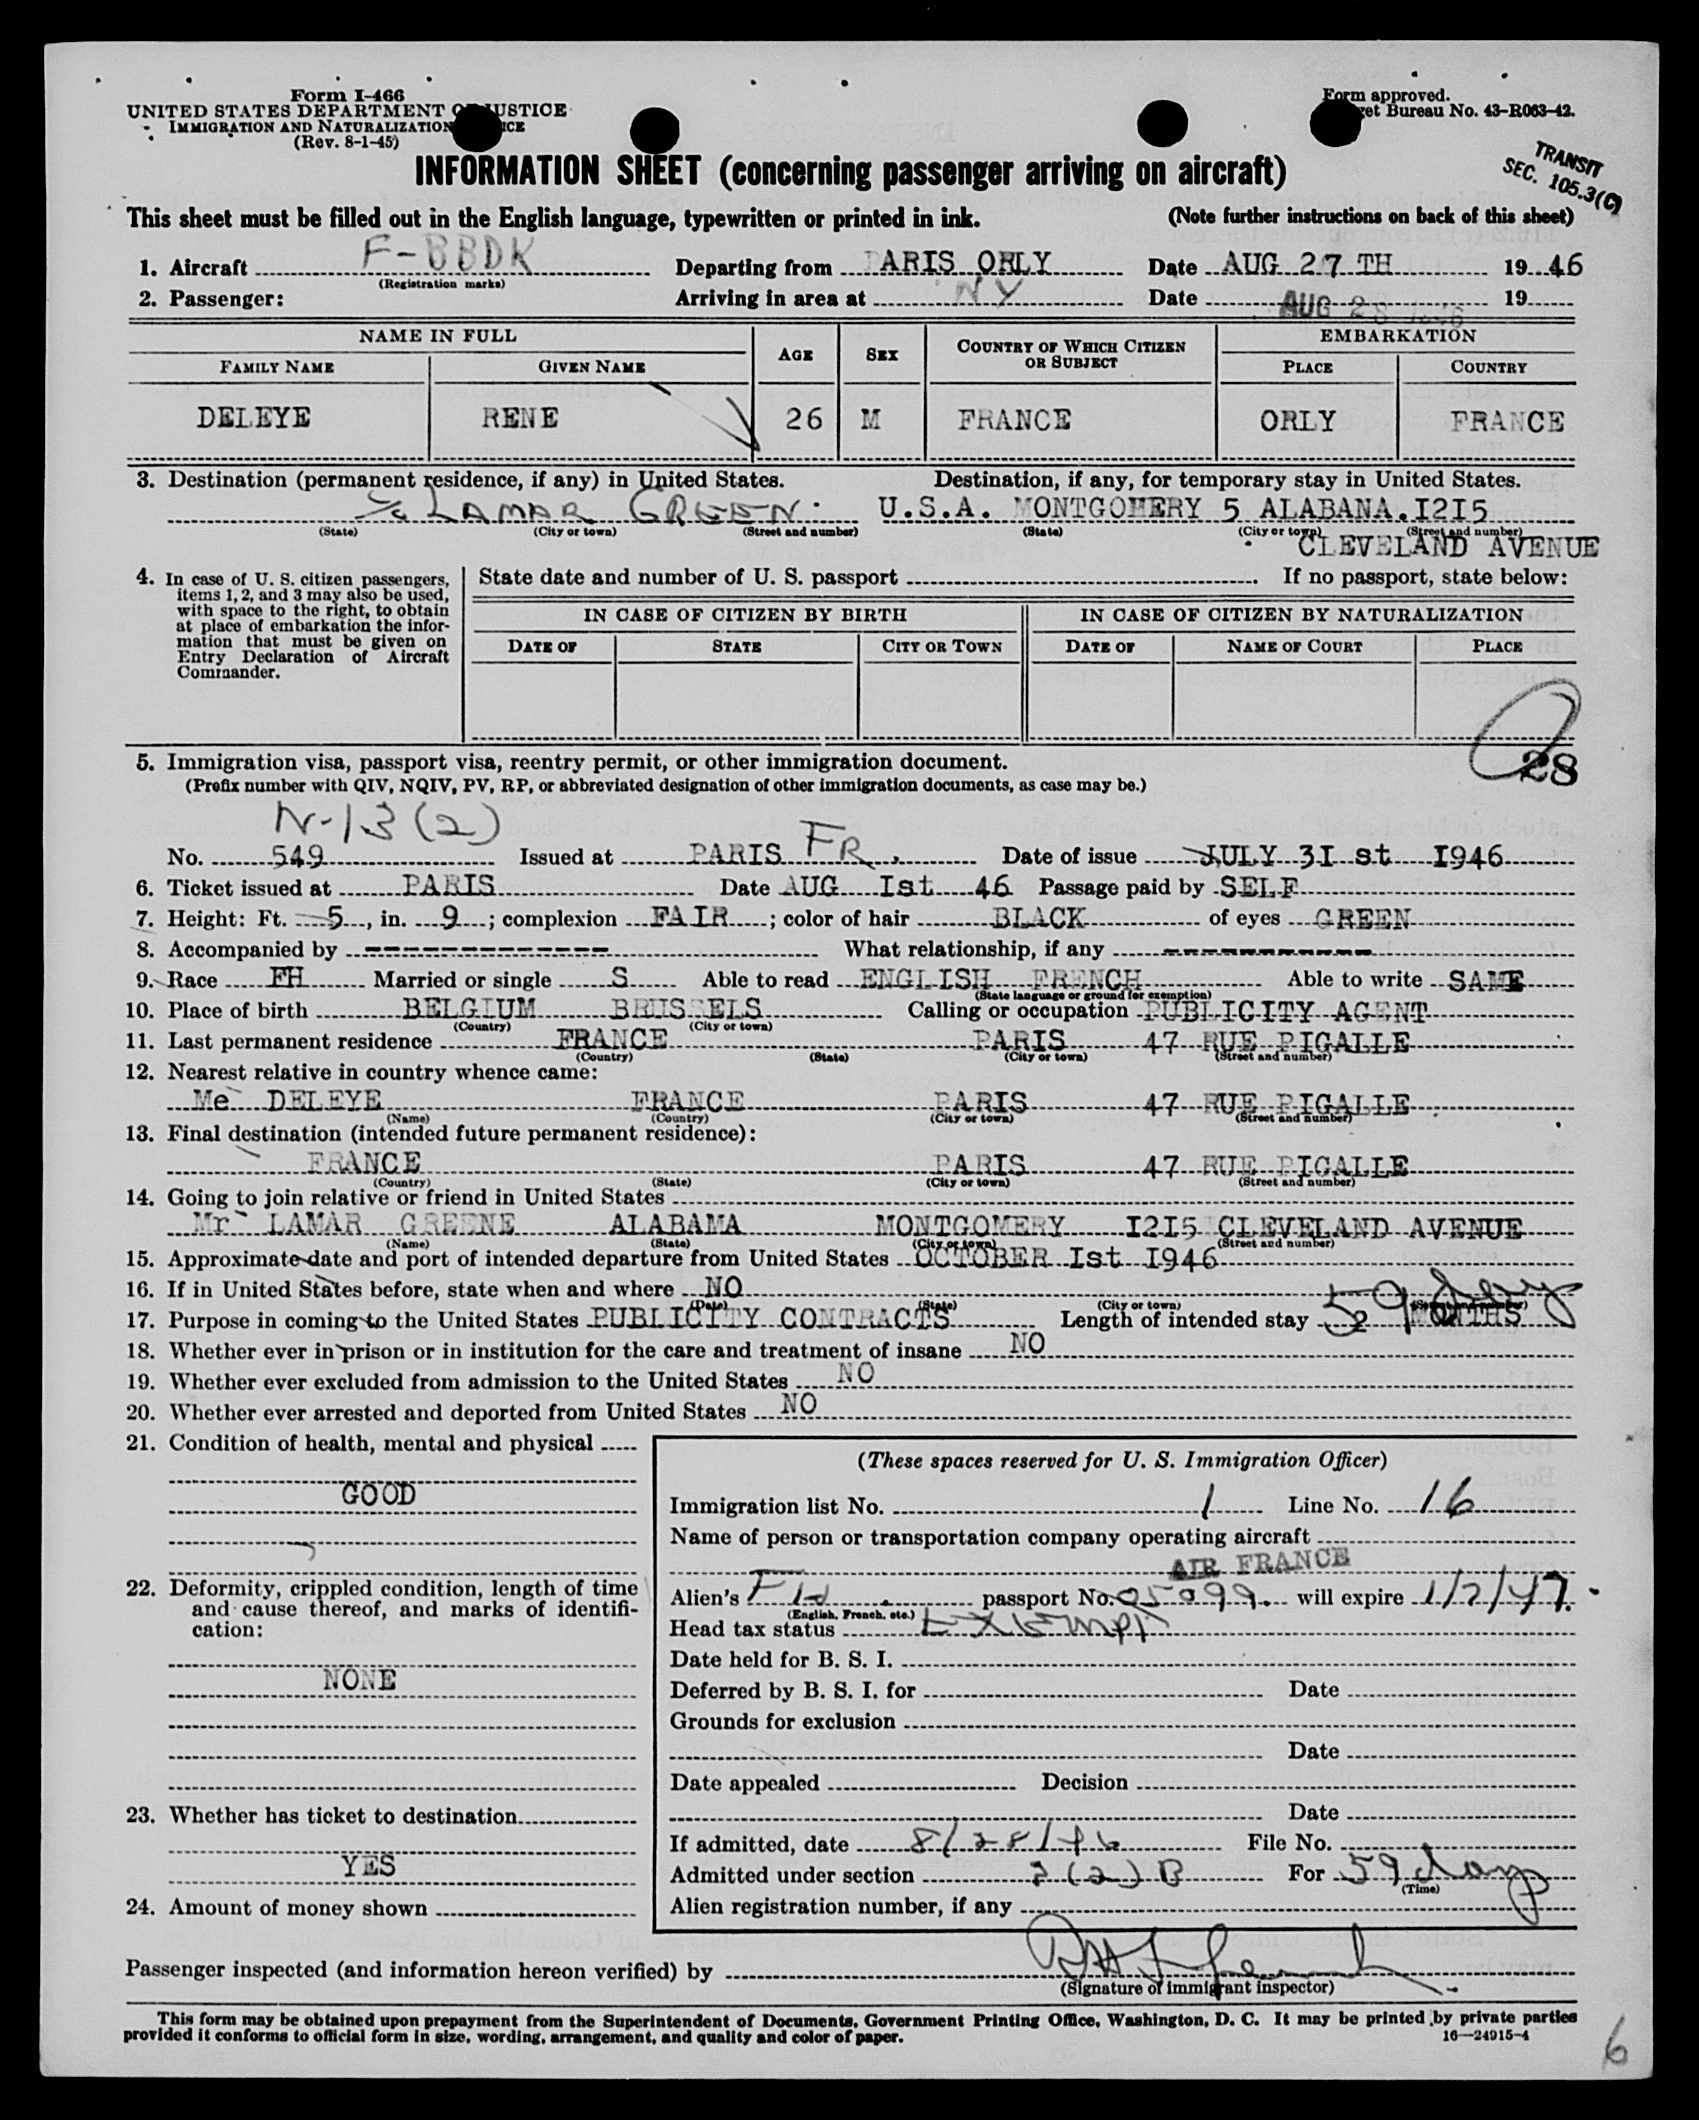 Form I-466
UNITED STATES DEPARTMENT OF JUSTICE
IMMIGRATION AND NATURALIZATION SERVICE
(Rev. 8-1-45)
Form approved.
Budget Bureau No. 43-R063-42.
TRANSIT
SEC. 105.3(C)
INFORMATION SHEET (concerning passenger arriving on aircraft)
This sheet must be filled out in the English language, typewritten or printed in ink. (Note further instructions on back of this sheet)
1. Aircraft F-BBDK Departing from PARIS ORLY Date AUG 27 TH 19 46
(Registration marks)
2. Passenger: Arriving in area at NY Date AUG 28 1946 19
NAME IN FULL AGE SEX COUNTRY OF WHICH CITIZEN OR SUBJECT EMBARKATION
FAMILY NAME GIVEN NAME PLACE COUNTRY
DELEYE RENE 26 M FRANCE ORLY FRANCE
3. Destination (permanent residence, if any) in United States. Destination, if any, for temporary stay in United States.
℅ LAMAR GREEN. U.S.A. MONTGOMERY 5 ALABANA.I2I5
(State) (City or town) (Street and number) (State) (City or town) (Street and number)
CLEVELAND AVENUE
4. In case of U. S. citizen passengers, items 1, 2, and 3 may also be used, with space to the right, to obtain at place of embarkation the information that must be given on Entry Declaration of Aircraft Commander.
State date and number of U. S. passport . If no passport, state below:
IN CASE OF CITIZEN BY BIRTH IN CASE OF CITIZEN BY NATURALIZATION
DATE OF STATE CITY OR TOWN DATE OF NAME OF COURT PLACE
28
5. Immigration visa, passport visa, reentry permit, or other immigration document.
(Prefix number with QIV, NQIV, PV, RP, or abbreviated designation of other immigration documents, as case may be.)
N-13(2)
No. 549 Issued at PARIS FR. Date of issue JULY 3I st I946
6. Ticket issued at PARIS Date AUG Ist 46 Passage paid by SELF
7. Height: Ft. 5, in. 9; complexion FAIR; color of hair BLACK of eyes GREEN
8. Accompanied by -------------- What relationship, if any --------------
9. Race FH Married or single S Able to read ENGLISH FRENCH Able to write SAME
(State language or ground for exemption)
10. Place of birth BELGIUM BRUSSELS Calling or occupation PUBLICITY AGENT
(Country) (City or town)
11. Last permanent residence FRANCE PARIS 47 RUE PIGALLE
(Country) (State) (City or town) (Street and number)
12. Nearest relative in country whence came:
Me DELEYE FRANCE PARIS 47 RUE PIGALLE
(Name) (Country) (City or town) (Street and number)
13. Final destination (intended future permanent residence):
FRANCE PARIS 47 RUE PIGALLE
(Country) (State) (City or town) (Street and number)
14. Going to join relative or friend in United States
Mr LAMAR GREENE ALABAMA MONTGOMERY I2I5 CLEVELAND AVENUE
(Name) (State) (City or town) (Street and number)
15. Approximate date and port of intended departure from United States OCTOBER Ist I946
16. If in United States before, state when and where NO
(Date) (State) (City or town) (Street and number)
17. Purpose in coming to the United States PUBLICITY CONTRACTS Length of intended stay 2 MONTHS 59 days
18. Whether ever in prison or in institution for the care and treatment of insane NO
19. Whether ever excluded from admission to the United States NO
20. Whether ever arrested and deported from United States NO
21. Condition of health, mental and physical
GOOD
22. Deformity, crippled condition, length of time and cause thereof, and marks of identification:
NONE
23. Whether has ticket to destination
YES
24. Amount of money shown
(These spaces reserved for U. S. Immigration Officer)
Immigration list No. 1 Line No. 16
Name of person or transportation company operating aircraft
AIR FRANCE
Alien's FH passport No. 05099 will expire 1/7/47.
(English, French, etc.)
Head tax status EXEMPT
Date held for B. S. I.
Deferred by B. S. I. for Date
Grounds for exclusion
Date
Date appealed Decision
Date
If admitted, date 8/28/46 File No.
Admitted under section 3(2)B For 59 days
(Time)
Alien registration number, if any
Passenger inspected (and information hereon verified) by
(Signature of immigrant inspector)
This form may be obtained upon prepayment from the Superintendent of Documents, Government Printing Office, Washington, D. C. It may be printed by private parties
provided it conforms to official form in size, wording, arrangement, and quality and color of paper. 16—24915-4
6